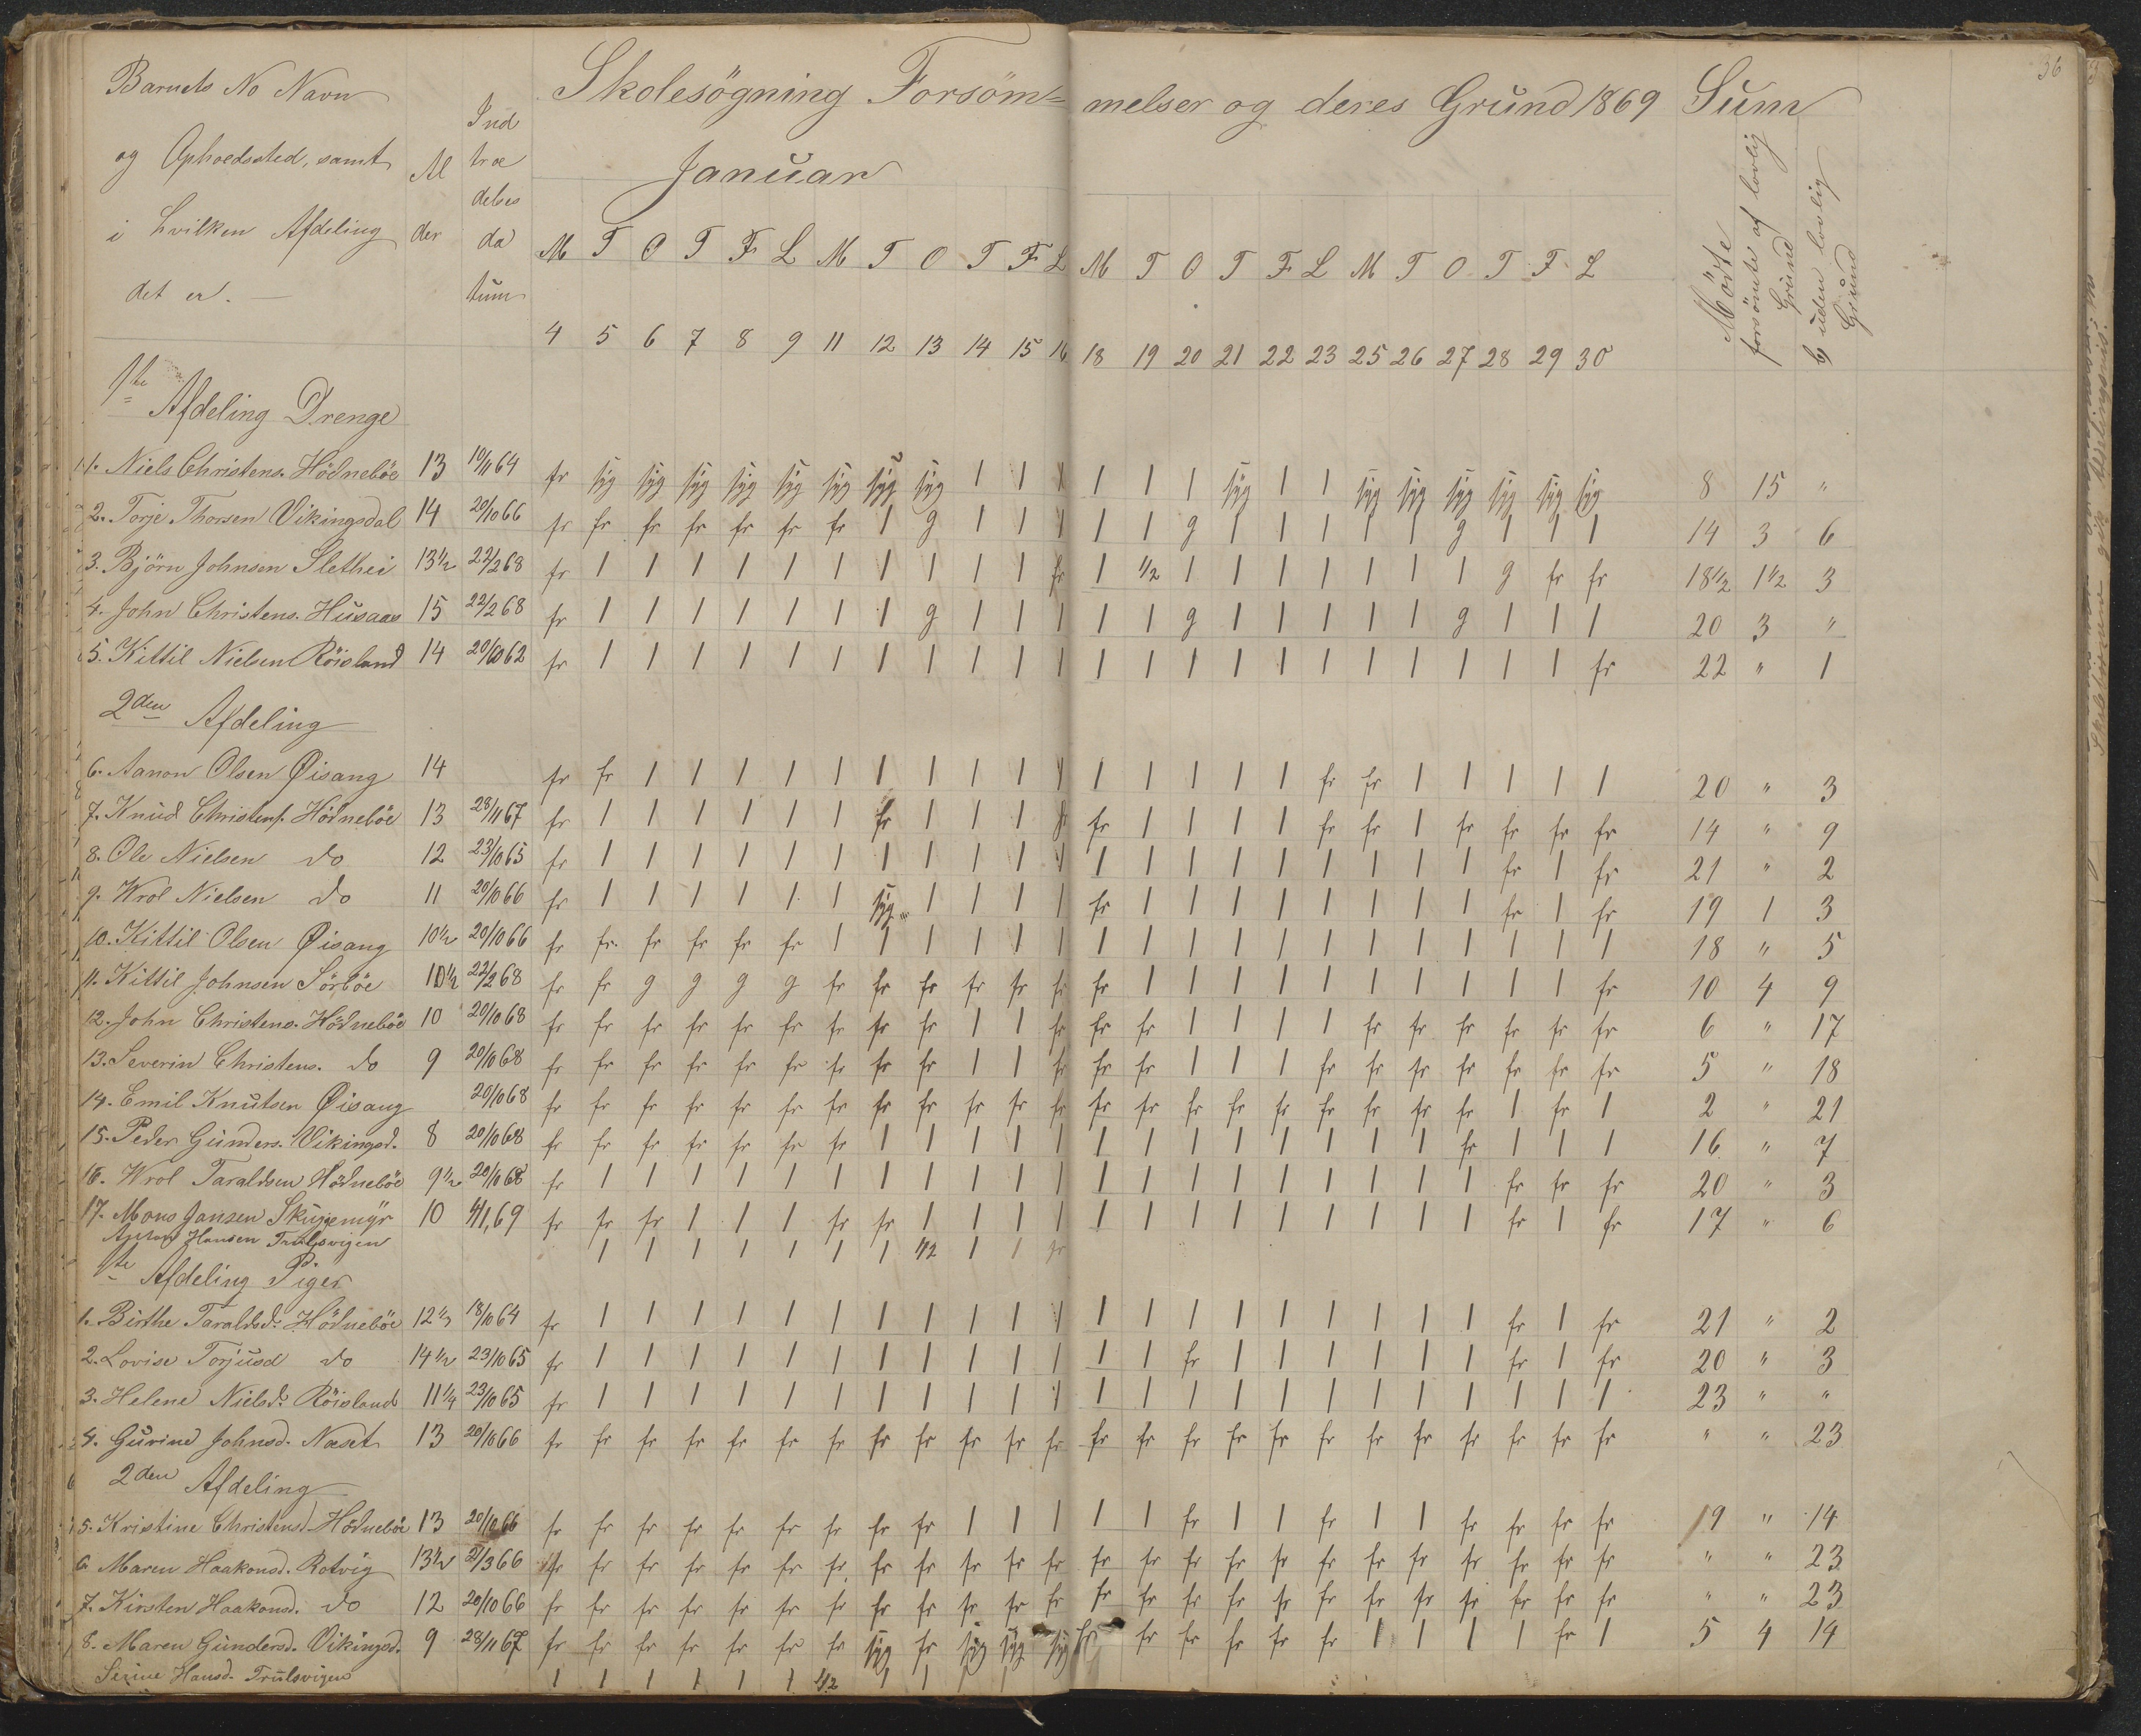 36
Barnets No Navn
og Opholdssted, samt
i hvilken Afdeling
det er. —
Al
der
Ind
træ
delses
da
tum
Skolesögning Forsöm= melser og deres Grund 1869 Sum
Januar
Mödte
forsömte af lovlig Grund
b) uden lovlig Grund
M T O T F L M T O T F L M T O T F L M T O T F L
4 5 6 7 8 9 11 12 13 14 15 16 18 19 20 21 22 23 25 26 27 28 29 30
1ste Afdeling Drenge
1. Niels Christens. Hödneböe 13 10/11 64 fr syg syg syg syg syg syg syg syg 1 1 1 1 1 1 syg 1 1 syg syg syg syg syg syg 8 15 "
2. Torje Thorsen Vikingsdal 14 20/10 66 fr fr fr fr fr fr fr 1 g 1 1 1 1 1 g 1 1 1 1 1 g 1 1 1 14 3 6
3. Björn Johnsen Slethei 13 1/2 22/2 68 fr 1 1 1 1 1 1 1 1 1 1 fr 1 1/2 1 1 1 1 1 1 1 g fr fr 18 1/2 1 1/2 3
4. John Christens. Husaas 15 22/2 68 fr 1 1 1 1 1 1 1 g 1 1 1 1 1 g 1 1 1 1 1 g 1 1 1 20 3 "
5. Kittil Nielsen Röisland 14 20/10 62 fr 1 1 1 1 1 1 1 1 1 1 1 1 1 1 1 1 1 1 1 1 1 1 fr 22 " 1
2den Afdeling
6. Aanon Olsen Øisang 14 fr fr 1 1 1 1 1 1 1 1 1 1 1 1 1 1 1 fr fr 1 1 1 1 1 20 " 3
7. Knud Christens. Hödneböe 13 28/11 67 fr 1 1 1 1 1 1 fr 1 1 1 fr fr 1 1 1 1 fr fr 1 fr fr fr fr 14 " 9
8. Ole Nielsen do 12 23/10 65 fr 1 1 1 1 1 1 1 1 1 1 1 1 1 1 1 1 1 1 1 1 fr 1 fr 21 " 2
9. Wrol Nielsen do 11 20/10 66 fr 1 1 1 1 1 1 syg 1 1 1 1 fr 1 1 1 1 1 1 1 1 fr 1 fr 19 1 3
10. Kittil Olsen Øisang 10 1/2 20/10 66 fr fr fr fr fr fr 1 1 1 1 1 1 1 1 1 1 1 1 1 1 1 1 1 1 18 " 5
11. Kittil Johnsen Sörböe 10 1/2 22/2 68 fr fr g g g g fr fr fr fr fr fr fr 1 1 1 1 1 1 1 1 1 1 fr 10 4 9
12. John Christens. Hödneböe 10 20/10 68 fr fr fr fr fr fr fr fr fr 1 1 fr fr fr 1 1 1 1 fr fr fr fr fr fr 6 " 17
13. Severin Christens. do 9 20/10 68 fr fr fr fr fr fr fr fr fr 1 1 fr fr fr 1 1 1 fr fr fr fr fr fr fr 5 " 18
14. Emil Knutsen Øisang 20/10 68 fr fr fr fr fr fr fr fr fr fr fr fr fr fr fr fr fr fr fr fr fr 1 fr 1 2 " 21
15. Peder Gunders. Vikingsd. 8 20/10 68 fr fr fr fr fr fr fr 1 1 1 1 1 1 1 1 1 1 1 1 1 fr 1 1 1 16 " 7
16. Wrol Taraldsen Hödneböe 9 1/2 20/10 68 fr 1 1 1 1 1 1 1 1 1 1 1 1 1 1 1 1 1 1 1 1 fr fr fr 20 " 3
17. Mons Jansen Skujemyr 10 4/1, 69 fr fr fr 1 1 1 fr fr 1 1 1 1 1 1 1 1 1 1 1 1 1 fr 1 fr 17 " 6
Hansen Trulsvigen 1 1 1 1 1 1 1 1/2 1 1 fr
1ste Afdeling Piger
1. Birthe Taraldsd. Hödneböe 12 1/2 18/10 64 fr 1 1 1 1 1 1 1 1 1 1 1 1 1 1 1 1 1 1 1 1 fr 1 fr 21 " 2
2. Lovise Torjusd do 14 1/2 23/10 65 fr 1 1 1 1 1 1 1 1 1 1 1 1 1 fr 1 1 1 1 1 1 fr 1 fr 20 " 3
3. Helene Nielsd. Röisland 11 1/4 23/10 65 fr 1 1 1 1 1 1 1 1 1 1 1 1 1 1 1 1 1 1 1 1 1 1 1 23 " "
4. Gurine Johnsd. Næset 13 20/10 66 fr fr fr fr fr fr fr fr fr fr fr fr fr fr fr fr fr fr fr fr fr fr fr fr " " 23
2den Afdeling
5. Kristine Christensd. Hödneböe 13 20/10 66 fr fr fr fr fr fr fr fr fr 1 1 1 1 1 fr 1 1 fr 1 1 fr fr fr fr 9 " 14
6 Maren Haakonsd. Rotvig 13 1/2 21/3 66 fr fr fr fr fr fr fr fr fr fr fr fr fr fr fr fr fr fr fr fr fr fr fr fr " " 23
7. Kirsten Haakonsd. do 12 20/10 66 fr fr fr fr fr fr fr fr fr fr fr fr fr fr fr fr fr fr fr fr fr fr fr fr " " 23
8. Maren Gundersd. Vikingsd. 9 28/11 67 fr fr fr fr fr fr fr syg fr syg syg syg fr fr fr fr fr fr 1 1 1 1 fr 1 5 4 14
Serine Hansd. Trulsvigen 1 1 1 1 1 1 1/2 1 1 1 1